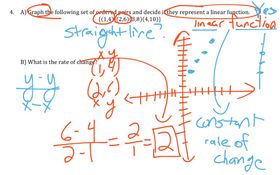 4. A) Graph the following set of ordered pairs and decide if they represent a linear function.
{(1,4)(2,6)(3,8)(4,10)}
Yes
linear function
straight line?
x y
(1, 4)
B) What is the rate of change?
y - y
x - x
(2, 6)
x y
6-4
2-1
= 2
1
= 2
constant
rate of
change